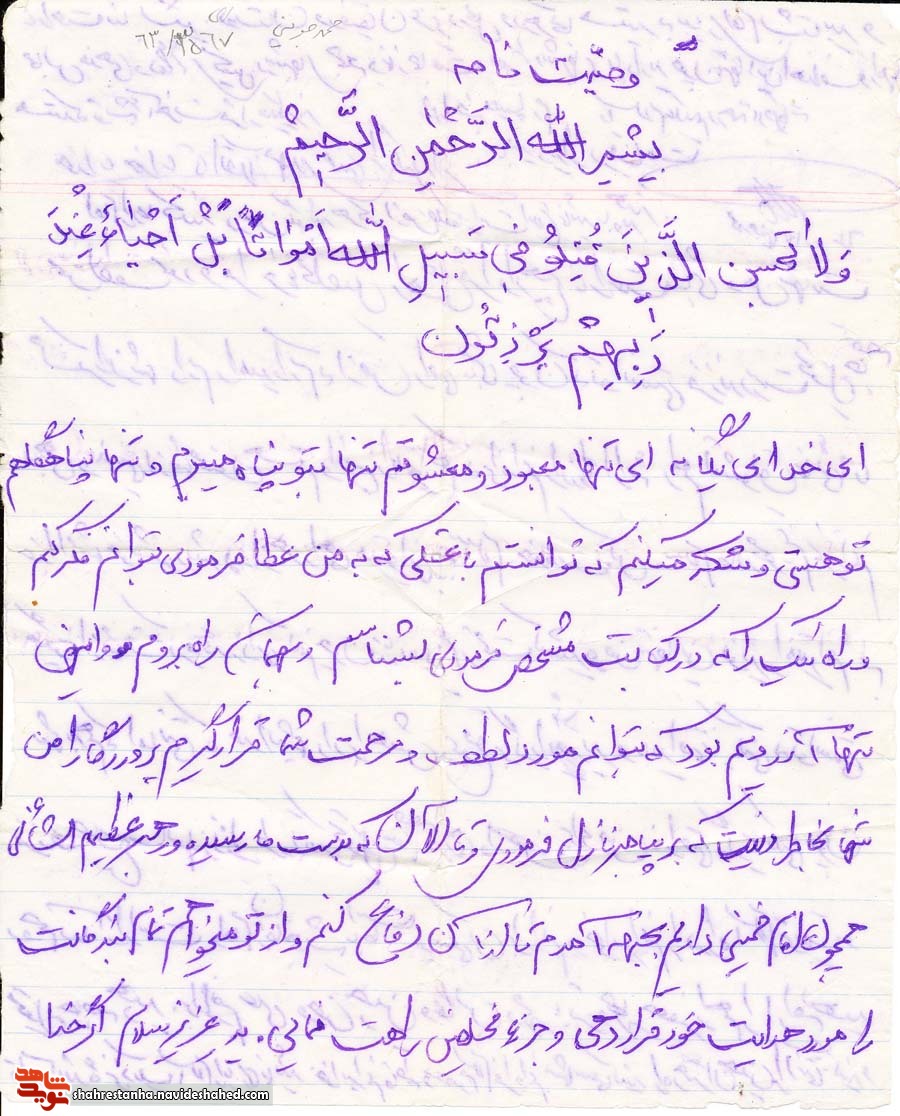 ۶۳/۳۵۰۶۷
وصیت نامه
بِسْمِ اللهِ الرَّحْمٰنِ الرَّحیمْ
وَلاٰ تَحْسَبن الَّذینَ قُتِلوُ فی سَبیلِ اللهِ اَمْوٰاتاً بَلْ اَحْیٰاءُ عِنْدَ
رَبِهِمْ یُرْزَقُون
ای خدای یگانه ای تنها معبود و معشوقم تنها بتو پناه میبرم و تنها پناهگاهم
تو هستی و شکر میکنم که توانستم با عقلی که به من عطا فرمودی بتوانم فکر کنم
و راه نیک را که در کتابت مشخص فرمودی بشناسم و بهمان راه بروم و این
تنها آرزویم بود که بتوانم مورد لطف و مرحمت شما قرار گیرم پروردگارا من
تنها بخاطر دینت که بر پیامبر نازل فرمودی و تا الآن که بدست ما رسیده و رهبر عظیم الشأنی
همچون امام خمینی داریم بجبهه آمدم تا از آن دفاع کنم و از تو میخواهم تمام بندگانت
را مورد هدایت خود قرار دهی و جزء مخلصین راهت نمایی. پدر عزیزم سلام اگر خدا
نوید شاهد
shahrestanha.navideshahed.com